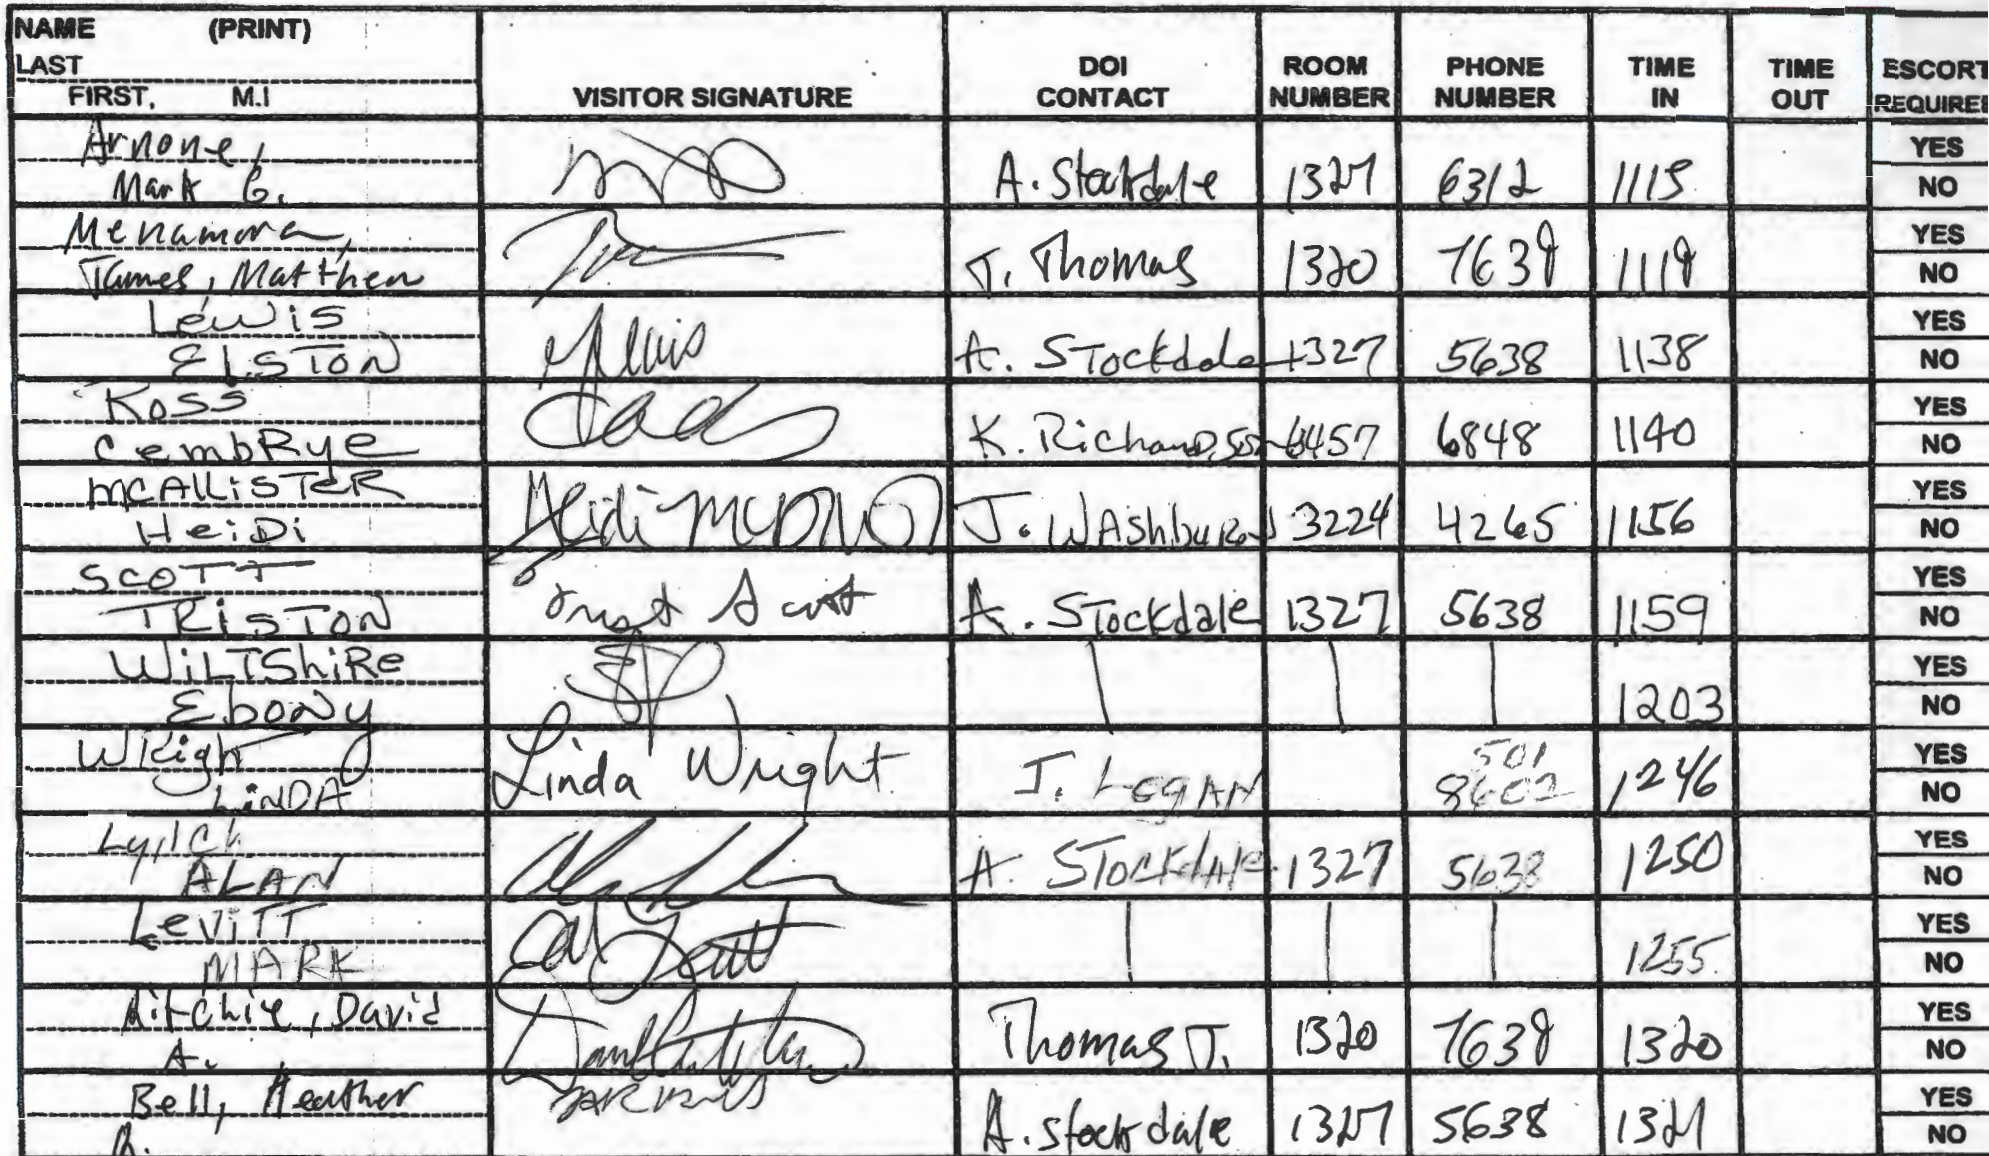 NAME (PRINT)
LAST
FIRST, M.I
VISITOR SIGNATURE
DOI CONTACT
ROOM NUMBER
PHONE NUMBER
TIME IN
TIME OUT
ESCORT REQUIRED
Arnone,
Mark G.
A. Stockdale 1327 6312 1115 YES
NO
Menamora,
James, Matthew
T. Thomas 1320 7638 1118 YES
NO
Lewis
ELSTON
A. STockdale 1327 5638 1138 YES
NO
Ross
CembRye
K. RichaRDson 6457 6848 1140 YES
NO
MCALLiSTeR
HeiDi
Heidi J. WAShbuRN 3224 4265 1156 YES
NO
SCOTT
TRiSTON
Scott A. STockdale 1327 5638 1159 YES
NO
WiLTShiRe
EboNy
1203 YES
NO
WRight
LiNDA
Linda Wright J. LOGAN 501 8602 1246 YES
NO
Lynch
ALAN
A. STockdAle 1327 5638 1250 YES
NO
LeViTT
MARK
1255 YES
NO
Ritchie, David
A.
Thomas T. 1320 7638 1320 YES
NO
Bell, Heather
R.
A. stockdale 1327 5638 1321 YES
NO